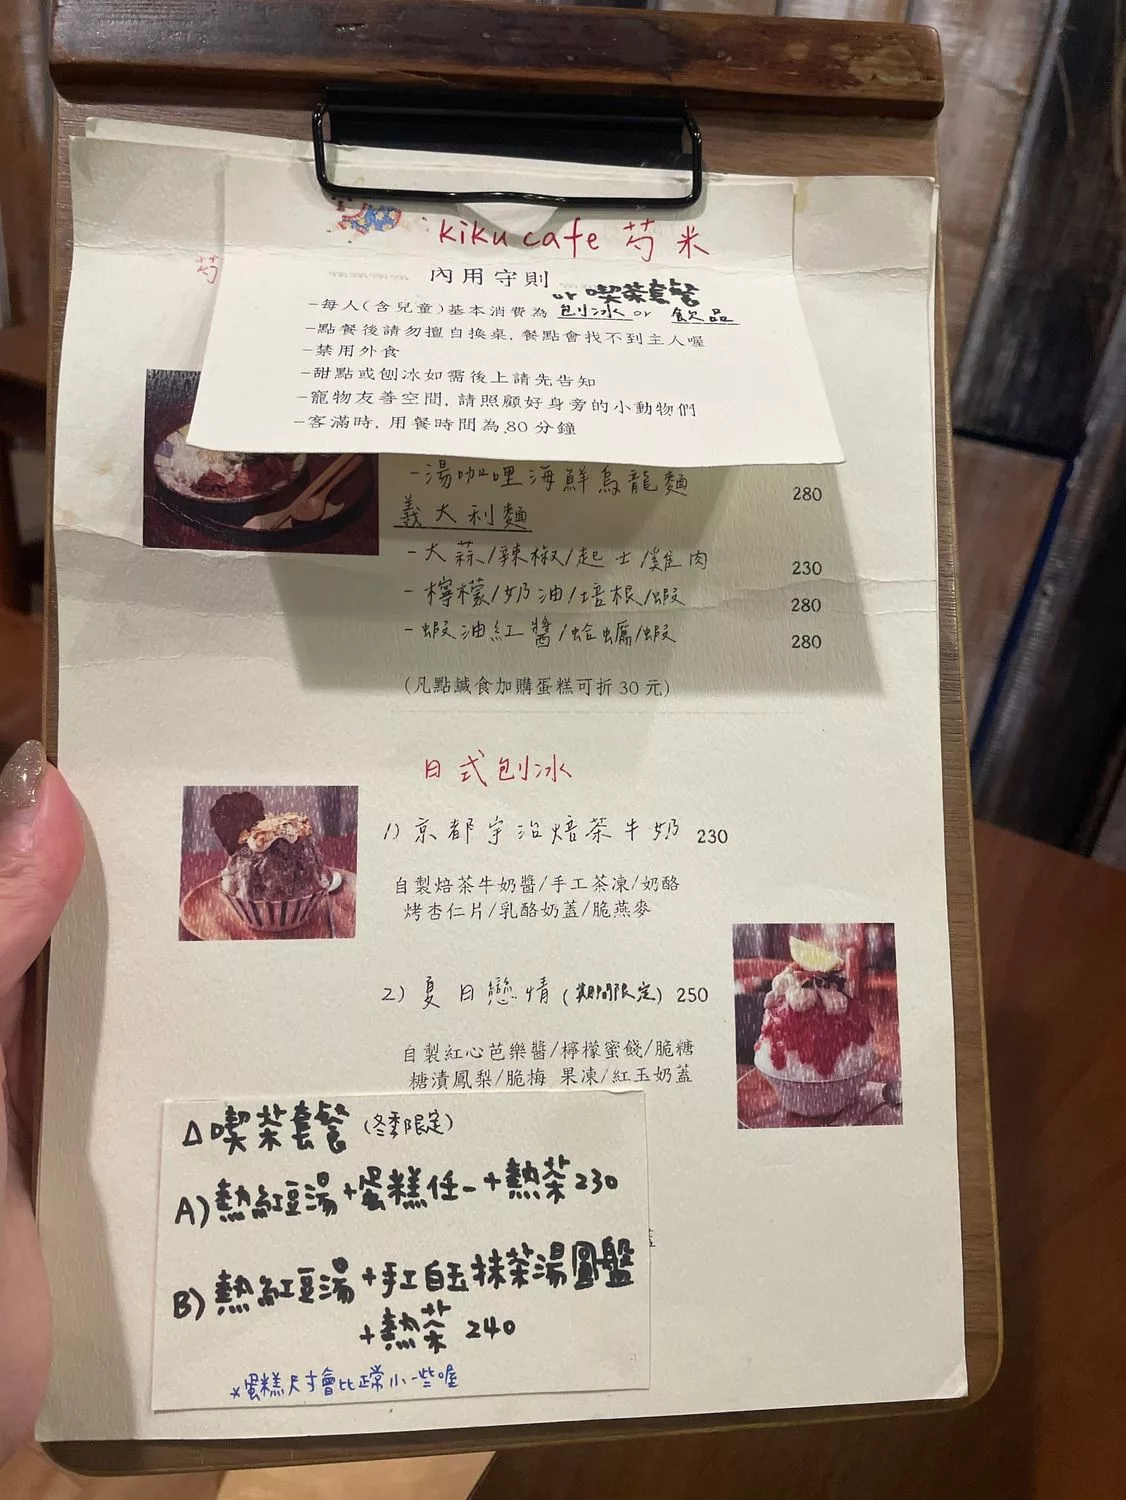 kiku cafe 芍米
芍
內用守則
or 喫茶套餐
-每人(含兒童)基本消費為 刨冰 or 飲品
-點餐後請勿擅自換桌, 餐點會找不到主人喔
-禁用外食
-甜點或刨冰如需後上請先告知
-寵物友善空間, 請照顧好身旁的小動物們
-客滿時, 用餐時間為 80 分鐘
-湯咖哩海鮮烏龍麵 280
義大利麵
-大蒜/辣椒/起士/雞肉 230
-檸檬/奶油/培根/蝦 280
-蝦油紅醬/蛤蠣/蝦 280
(凡點鹹食加購蛋糕可折 30 元)
日式刨冰
1) 京都宇治焙茶牛奶 230
自製焙茶牛奶醬/手工茶凍/奶酪
烤杏仁片/乳酪奶蓋/脆燕麥
2) 夏日戀情 (期間限定) 250
自製紅心芭樂醬/檸檬蜜餞/脆糖
糖漬鳳梨/脆梅 果凍/紅玉奶蓋
△喫茶套餐 (冬季限定)
A) 熱紅豆湯+蛋糕任一+熱茶 230
B) 熱紅豆湯+手工白玉抹茶湯圓盤
+熱茶 240
*蛋糕尺寸會比正常小一些喔